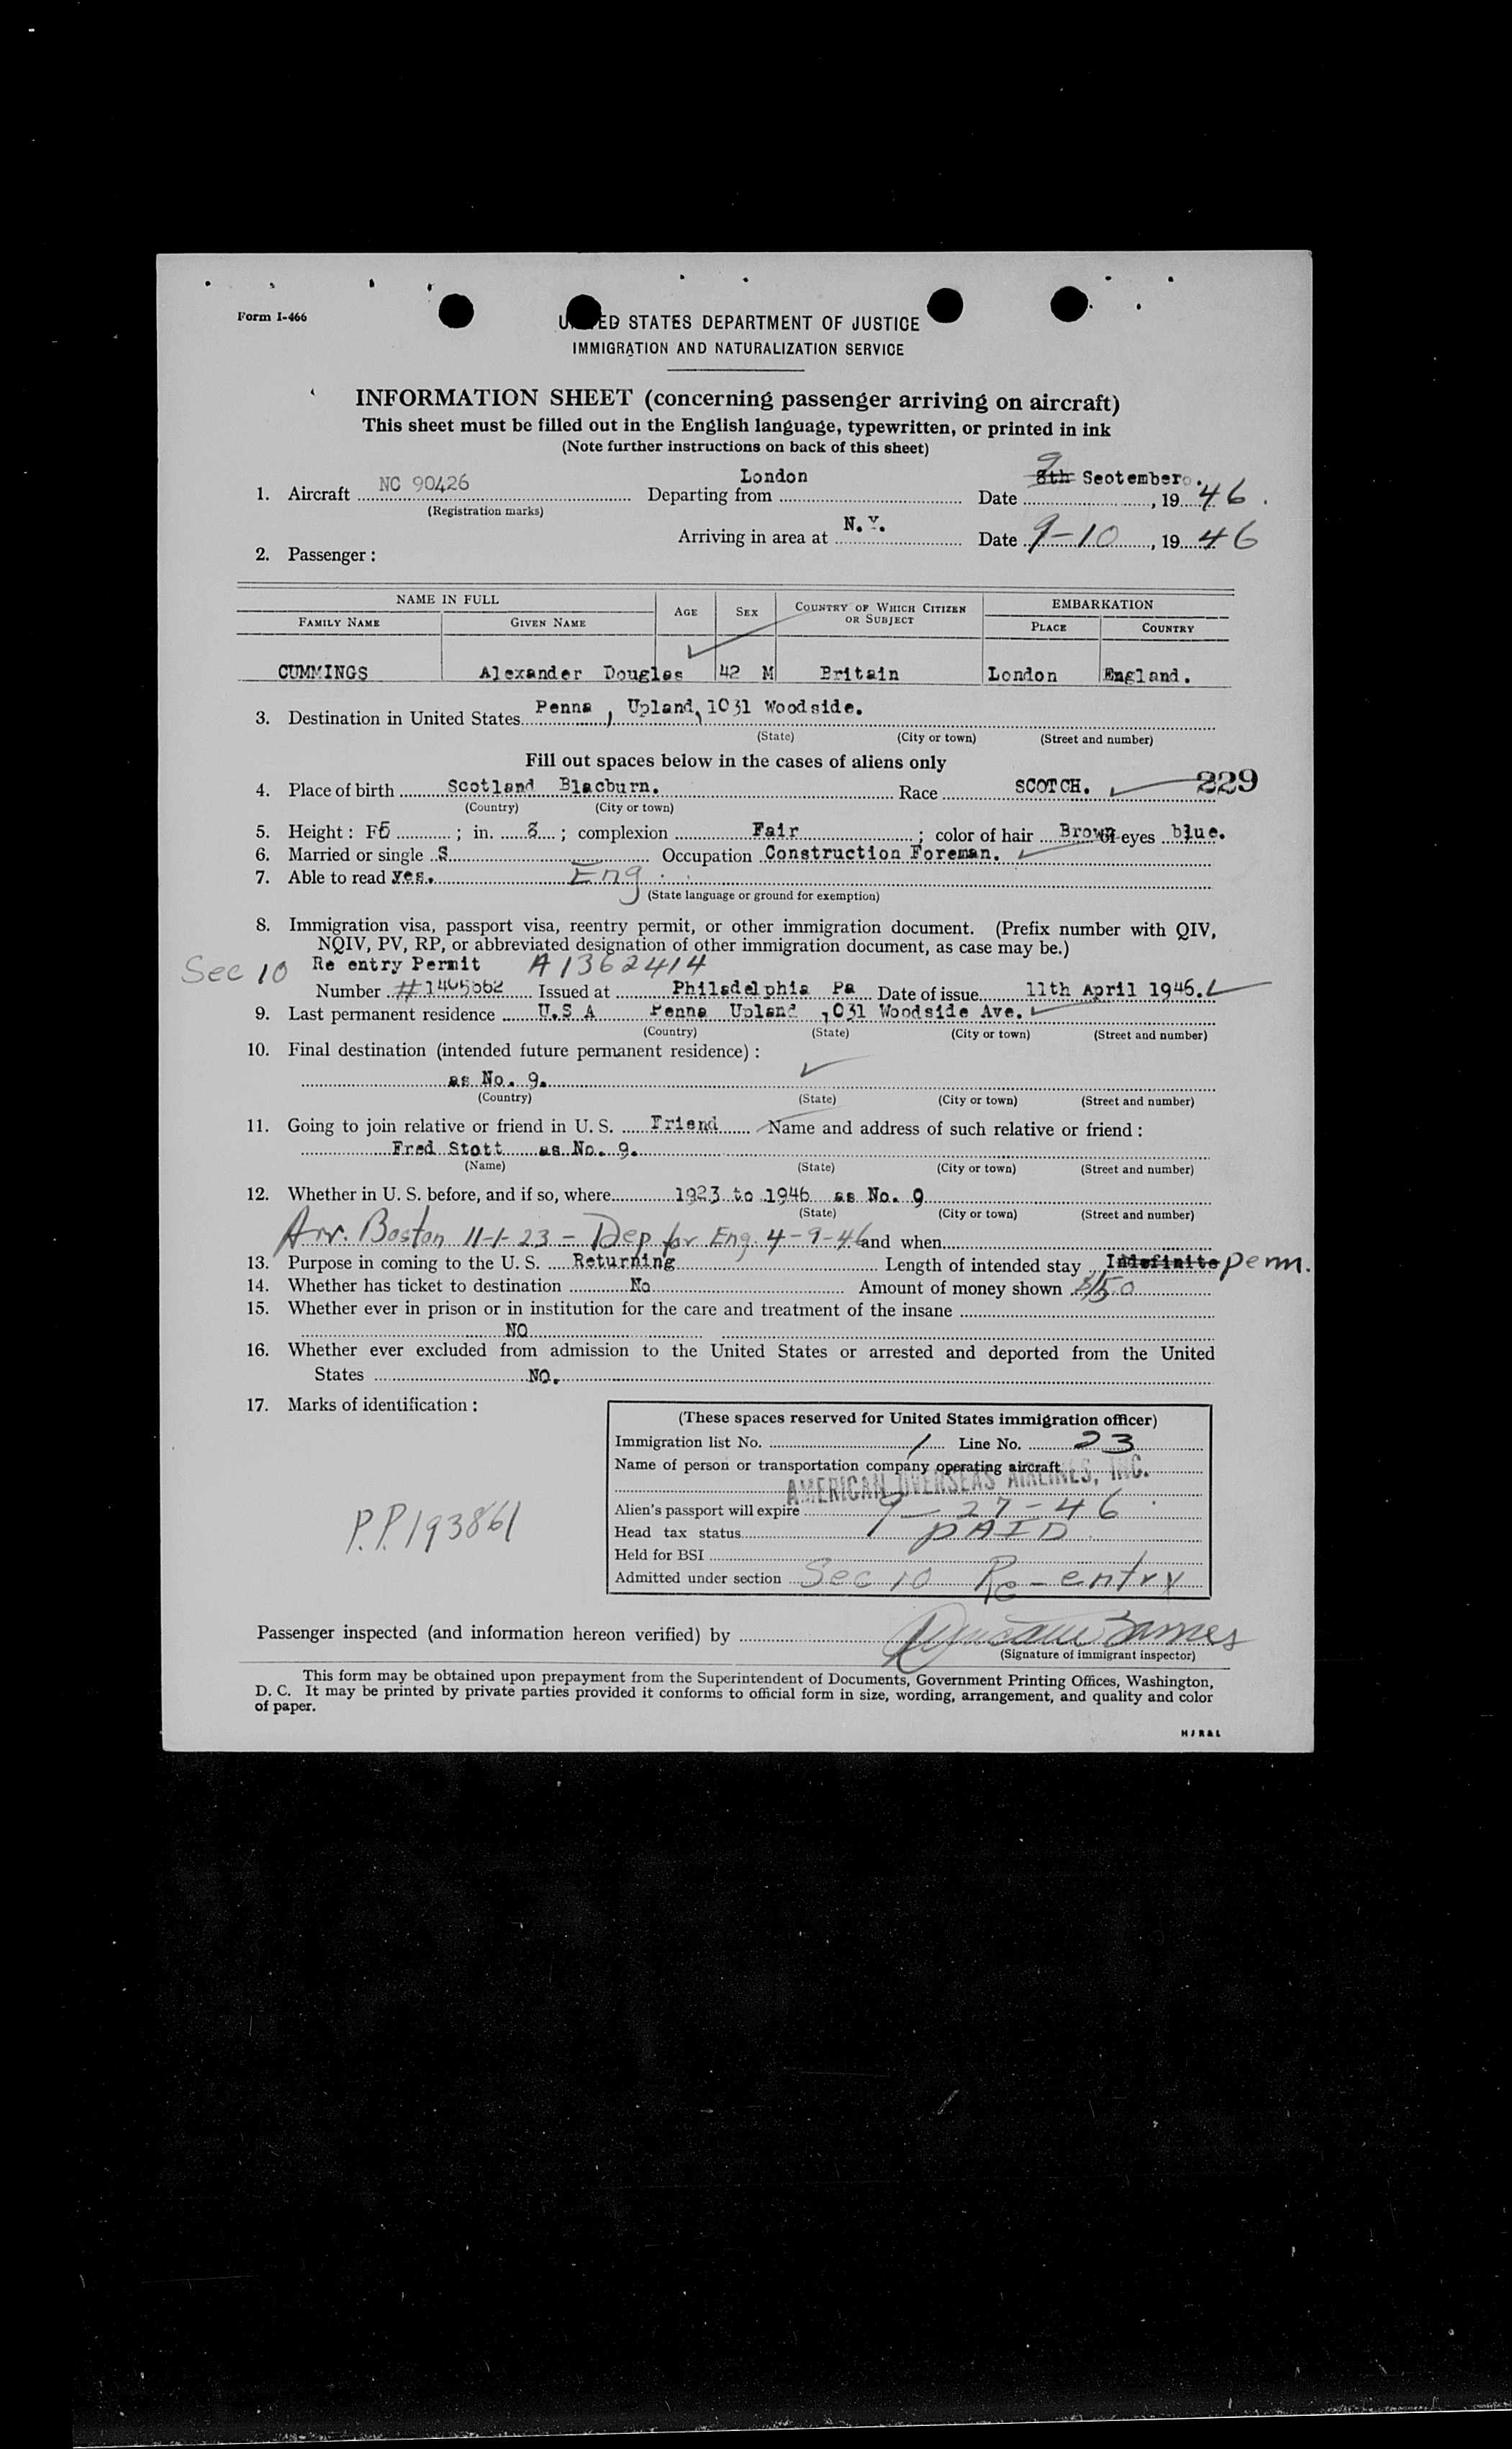 Form I-466
UNITED STATES DEPARTMENT OF JUSTICE
IMMIGRATION AND NATURALIZATION SERVICE
INFORMATION SHEET (concerning passenger arriving on aircraft)
This sheet must be filled out in the English language, typewritten, or printed in ink
(Note further instructions on back of this sheet)
1. Aircraft NC 90426 Departing from London Date 8th 9 Seotember. , 19 46.
(Registration marks)
Arriving in area at N.Y. Date 9-10, 19 46
2. Passenger:
NAME IN FULL AGE SEX COUNTRY OF WHICH CITIZEN OR SUBJECT EMBARKATION
FAMILY NAME GIVEN NAME PLACE COUNTRY
CUMMINGS Alexander Douglas 42 M Britain London England.
3. Destination in United States Penna, Upland, 1031 Woodside.
(State) (City or town) (Street and number)
Fill out spaces below in the cases of aliens only
4. Place of birth Scotland Blacburn. Race SCOTCH. 229
(Country) (City or town)
5. Height: Ft 5; in. 8; complexion Fair; color of hair Brown of eyes blue.
6. Married or single S Occupation Construction Foreman.
7. Able to read yes. Eng
(State language or ground for exemption)
8. Immigration visa, passport visa, reentry permit, or other immigration document. (Prefix number with QIV,
NQIV, PV, RP, or abbreviated designation of other immigration document, as case may be.)
Sec 10 Re entry Permit A1362414
Number # Issued at Philadelphia Pa Date of issue 11th April 1946.
9. Last permanent residence U.S A Penna Upland 1031 Woodside Ave.
(Country) (State) (City or town) (Street and number)
10. Final destination (intended future permanent residence):
as No. 9.
(Country) (State) (City or town) (Street and number)
11. Going to join relative or friend in U. S. Friend Name and address of such relative or friend:
Fred Stott as No. 9.
(Name) (State) (City or town) (Street and number)
12. Whether in U. S. before, and if so, where 1923 to 1946 as No. 9
(State) (City or town) (Street and number)
Arr. Boston 11-1-23 - Dep for Eng. 4-9-46 and when
13. Purpose in coming to the U. S. Returning Length of intended stay Indefinite perm.
14. Whether has ticket to destination No Amount of money shown $150
15. Whether ever in prison or in institution for the care and treatment of the insane
NO
16. Whether ever excluded from admission to the United States or arrested and deported from the United
States NO.
17. Marks of identification:
(These spaces reserved for United States immigration officer)
Immigration list No. 1 Line No. 23
Name of person or transportation company operating aircraft
AMERICAN OVERSEAS AIRLINES, INC.
Alien's passport will expire 9-27-46
P.P.193861
Head tax status PAID
Held for BSI
Admitted under section Sec 10 Re-entry
Passenger inspected (and information hereon verified) by
(Signature of immigrant inspector)
This form may be obtained upon prepayment from the Superintendent of Documents, Government Printing Offices, Washington,
D. C. It may be printed by private parties provided it conforms to official form in size, wording, arrangement, and quality and color
of paper.
HJR&L